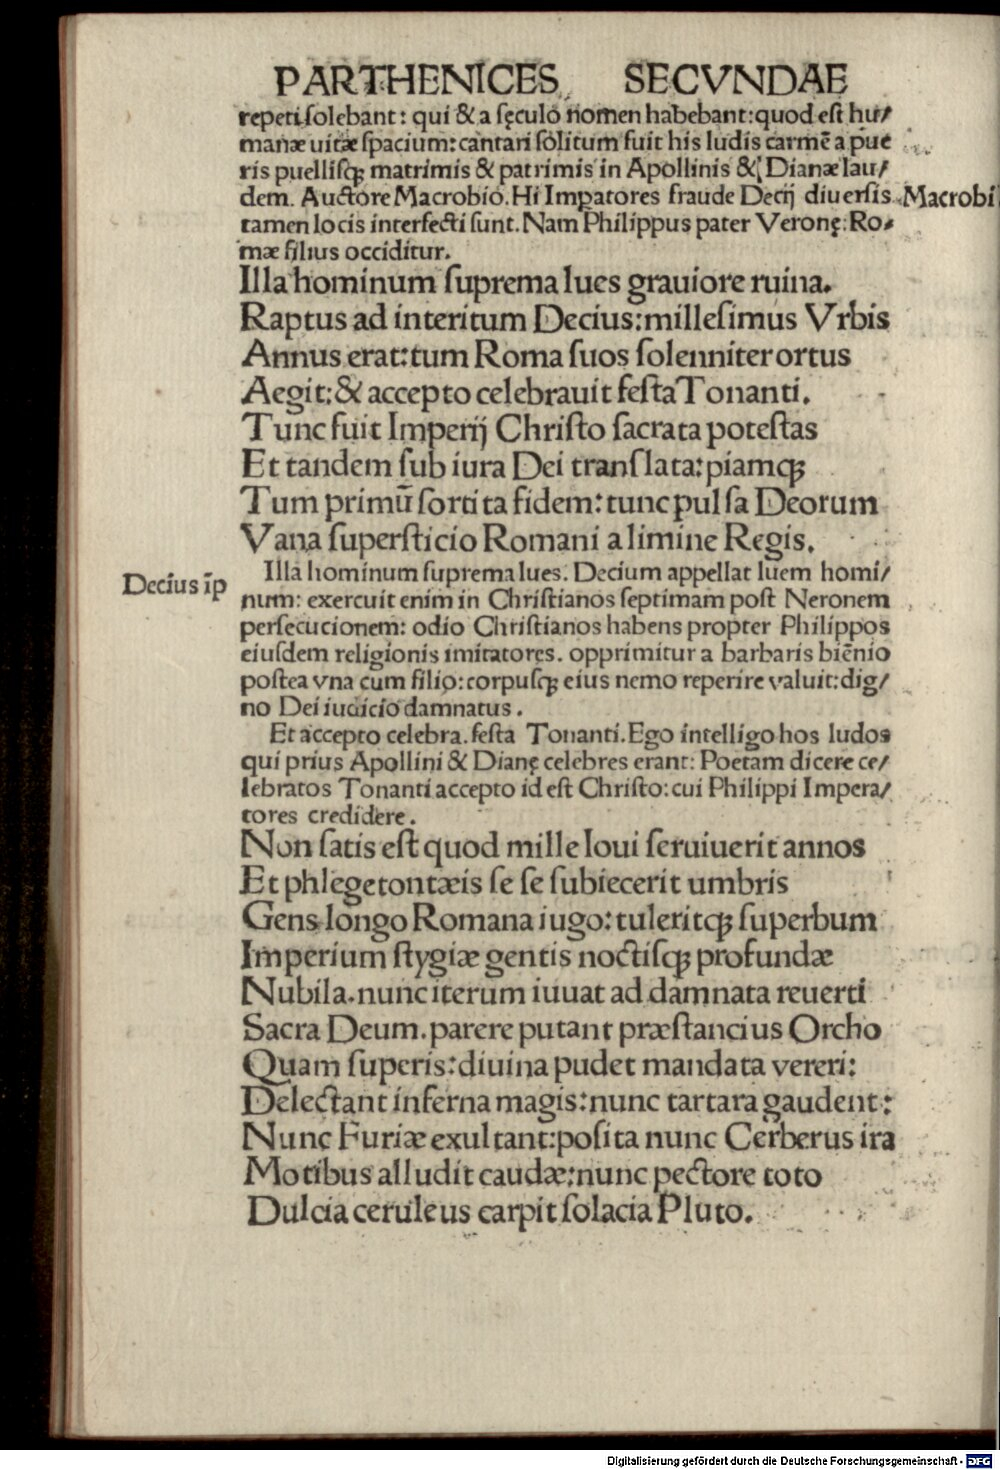 PARTHENICES SECVNDAE
repeti ſolebant: qui & a ſęculo nomen habebant: quod eſt hu/
manæ uitæ ſpacium: cantari ſolitum fuit his ludis carmē a pue
ris puelliſq; matrimis & patrimis in Apollinis & Dianæ lau/
dem. Auctore Macrobio. Hi Impatores fraude Decij diuerſis
Macrobi
tamen locis interfecti ſunt. Nam Philippus pater Veronę: Ro/
mæ filius occiditur.
Illa hominum ſuprema lues grauiore ruina.
Raptus ad interitum Decius: milleſimus Vrbis
Annus erat: tum Roma ſuos ſolenniter ortus
Aegit: & accepto celebrauit feſta Tonanti.
Tunc fuit Imperij Chriſto ſacrata poteſtas
Et tandem ſub iura Dei tranſlata: piamq;
Tum primū ſortita fidem: tunc pulſa Deorum
Vana ſuperſticio Romani a limine Regis.
Illa hominum ſuprema lues. Decium appellat luem homi/
Decius īp
num: exercuit enim in Chriſtianos ſeptimam poſt Neronem
perſecucionem: odio Chriſtianos habens propter Philippos
eiuſdem religionis imitatores. opprimitur a barbaris biēnio
poſtea vna cum filio: corpuſq; eius nemo reperire valuit: dig/
no Dei iudicio damnatus.
Et accepto celebra. feſta Tonanti. Ego intelligo hos ludos
qui prius Apollini & Dianę celebres erant: Poetam dicere ce/
lebratos Tonanti accepto id eſt Chriſto: cui Philippi Impera/
tores credidere.
Non ſatis eſt quod mille Ioui ſeruiuerit annos
Et phlegetontæis ſe ſe ſubiecerit umbris
Gens longo Romana iugo: tuleritq; ſuperbum
Imperium ſtygiæ gentis noctiſq; profundæ
Nubila. nunc iterum iuuat ad damnata reuerti
Sacra Deum. parere putant præſtancius Orcho
Quam ſuperis: diuina pudet mandata vereri:
Delectant inferna magis: nunc tartara gaudent:
Nunc Furiæ exultant: poſita nunc Cerberus ira
Motibus alludit caudæ: nunc pectore toto
Dulcia ceruleus carpit ſolacia Pluto.
Digitalisierung gefördert durch die Deutsche Forschungsgemeinschaft - DFG